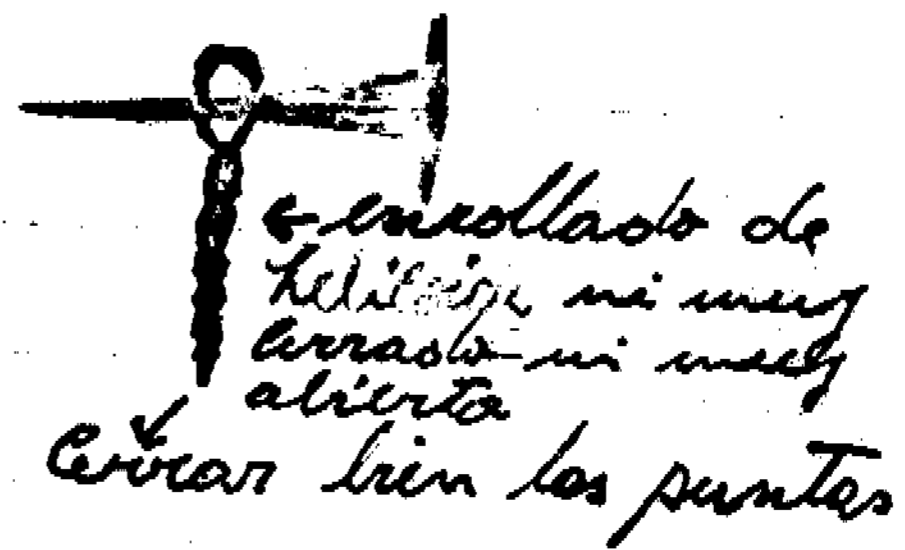 ← enrollado de
ni muy
cerrado ni muy
abierto
Cerrar bien las puntas